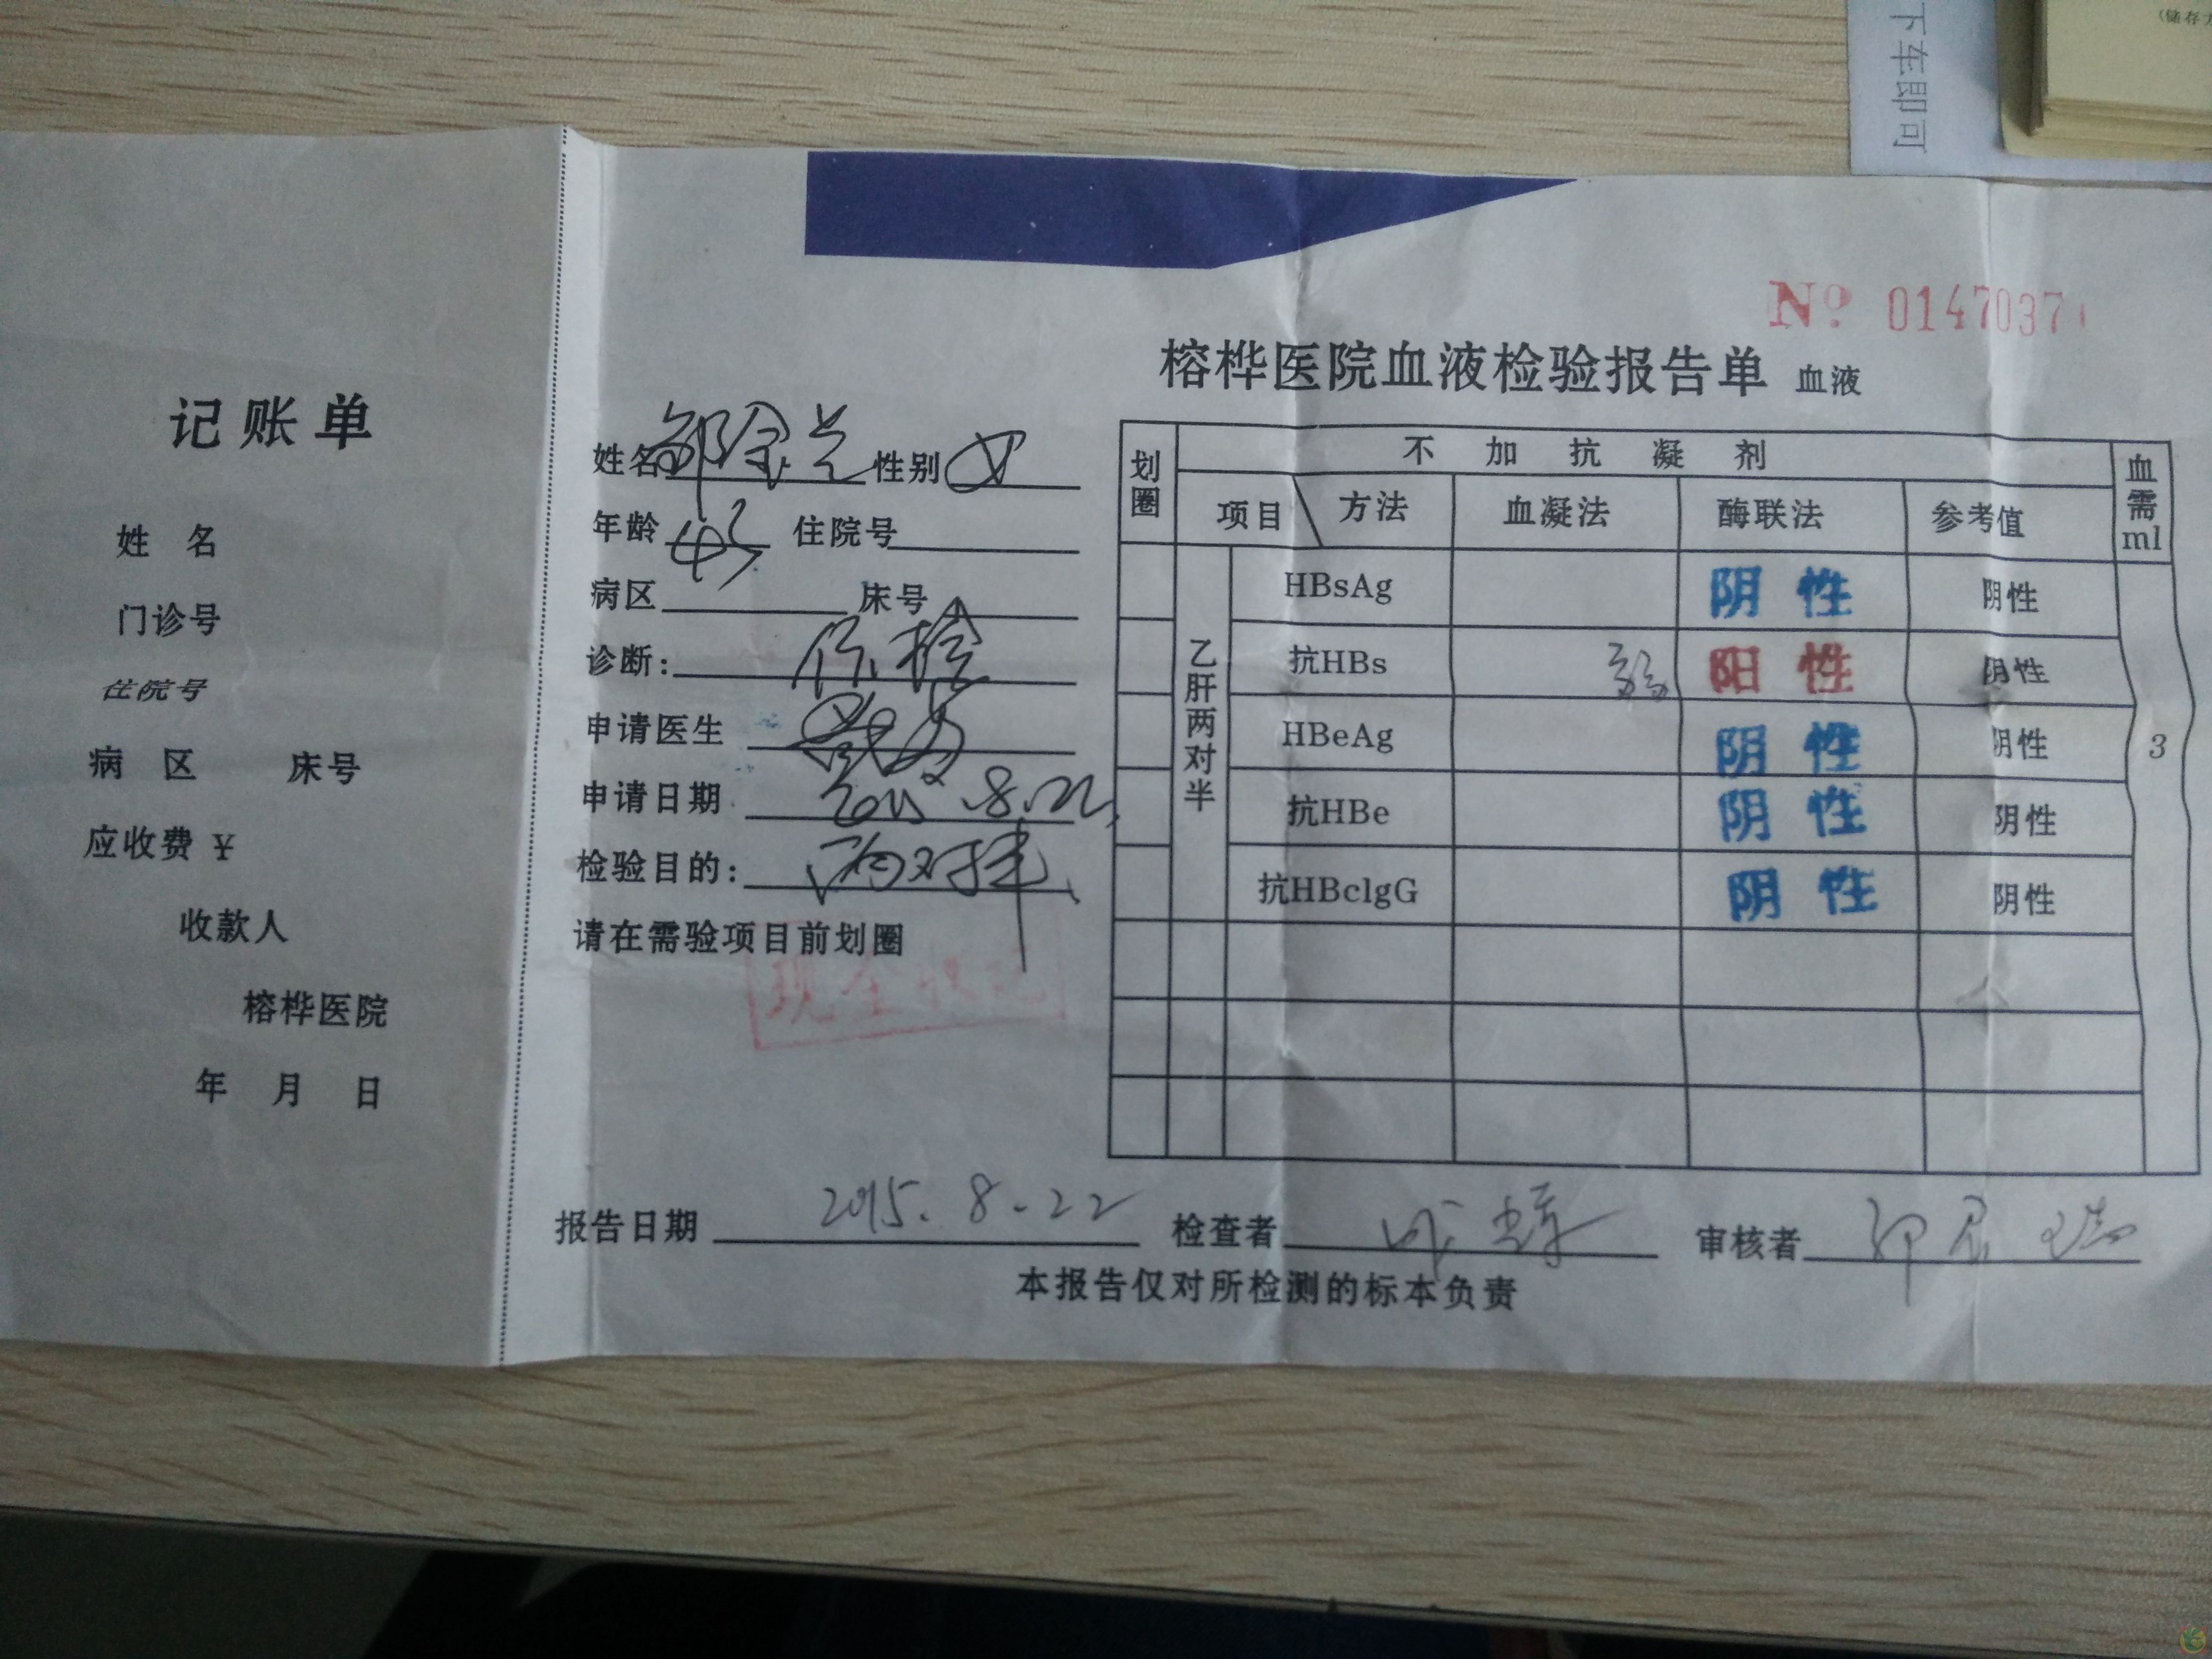 下车即可
(储存
№ 0147037
榕桦医院血液检验报告单 血液
记账单
姓 名
门诊号
住院号
病 区 床号
应收费 ¥
收款人
榕桦医院
年 月 日
姓名 性别 女
年龄 住院号
病区 床号
诊断: 体检
申请医生
申请日期 2015.8.22
检验目的: 两对半
请在需验项目前划圈
现金
划圈 不加抗凝剂 血需ml
项目 方法 血凝法 酶联法 参考值
乙肝两对半
HBsAg 阴性 阴性
抗HBs 弱 阳性 阴性
HBeAg 阴性 阴性
抗HBe 阴性 阴性
抗HBclgG 阴性 阴性
3
报告日期 2015.8.22 检查者 审核者
本报告仅对所检测的标本负责